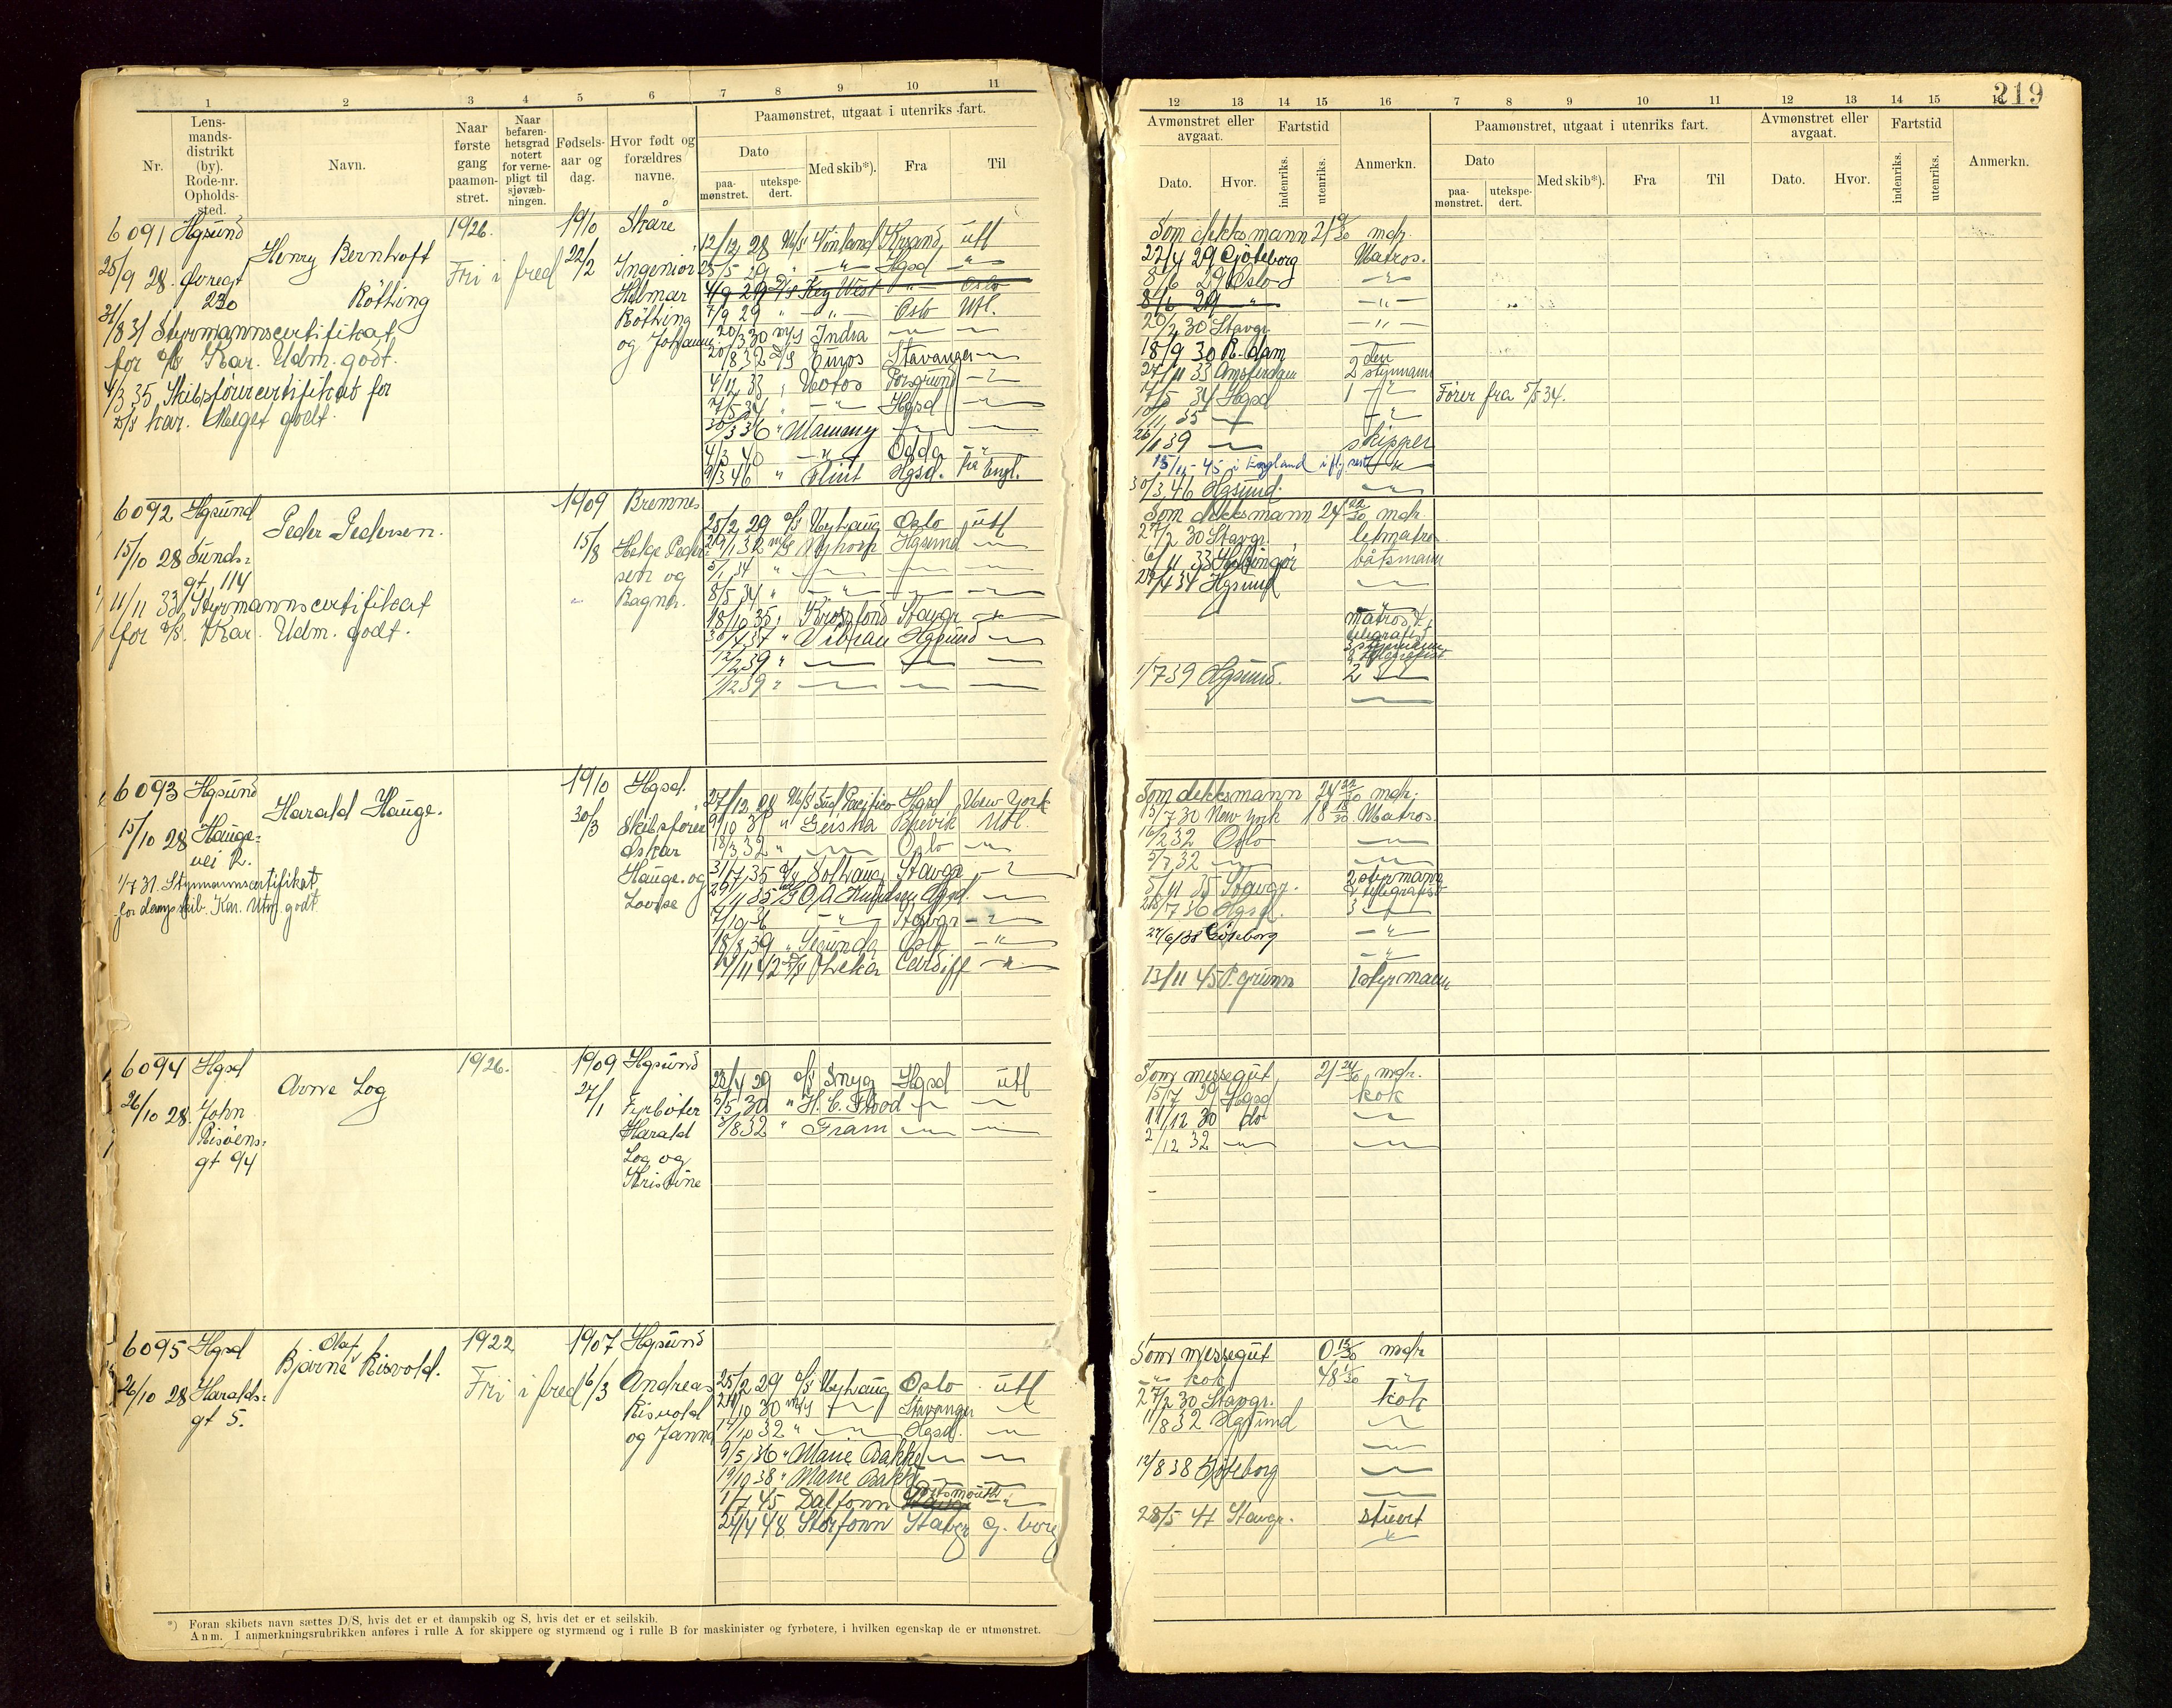 219
1 2 3 4 5 6 7 8 9 10 11
Nr.
Lens-
mands-
distrikt
(by).
Rode-nr.
Opholds-
sted.
Navn.
Naar
første
gang
paamøn-
stret.
Naar
befaren-
hetsgrad
notert
for verne-
pligt til
sjøvæb-
ningen.
Fødsels-
aar og
dag.
Hvor født og
forældres
navne.
Paamønstret, utgaat i utenriks fart.
Dato
paa-
mønstret.
utekspe-
dert.
Med skib*).
Fra
Til
12 13 14 15 16 7 8 9 10 11 12 13 14 15
Avmønstret eller
avgaat.
Dato.
Hvor.
Fartstid
indenriks.
utenriks.
Anmerkn.
Paamønstret, utgaat i utenriks fart.
Dato
paa-
mønstret.
utekspe-
dert.
Med skib*).
Fra
Til
Avmønstret eller
avgaat.
Dato.
Hvor.
Fartstid
indenriks.
utenriks.
Anmerkn.
6091 Hgsund
25/9 28
230
Henry Berntroft
Röthing
1926.
Fri i fred
1910
22/2
Skåre
Ingeniør
Hilmar
Röthing
og Johanne
31/8 31 Styrmannscertifikat
for d/s Kar. Udm. godt.
4/3 35 Skibsførercertifikat for
d/s kar. Meget godt.
12/12 28 M/S Vinland Krsand utl
25/5 29 " — " — Hgsd "
4/9 29 D/S Key West — " — Oslo
7/9 29 " — " — Oslo Utl.
20/3 30 m/s India — —
20/8 32 D/S Stavanger —
4/12 33 " Porsgrund — " —
7/5 34 " — " — Hgsd —
30/3 36 "
4/3 40 — " — Odda — " —
9/3 46 " Hgsd. fra Engl.
Som dekksmann 21 9/30 mdr.
22/4 29 Göteborg Matros.
8/6 29 Oslo — " —
8/6 29 " — " —
20/2 30 Stavgr. — " —
18/9 30 R.dam —
27/11 33 Amsterdam 2den styrmann
7/5 34 Hgsd 1 — " —
10/11 35 — — " —
26/1 39 — skipper
15/11 - 45 i England
30/3 46 Hgsund. —
Fører fra 5/5 34.
6092 Hgsund
15/10 28 Sunds-
gt. 114
Peder Pedersen.
1909
15/8
Bremnes
Helge Peder-
sen og
Ragna.
11/11 33 Styrmannscertifikat
for d/s. Kar. Udm. godt.
25/2 29 d/s Nyhaug Oslo utl
29/1 32 m/s Nyhorn Hgsund —
5/1 34 " — — —
8/5 34 " — " — — —
18/10 35 " Krossfonn Stavgr —
30/4 37 " Vibran Hgsund —
12/2 39 " — — —
1/12 39 " — — —
Som dekksmann 24 22/30 mdr.
27/2 30 Stavgr. letmatros
6/11 33 Helsingør båtsmann
27/4 34 Hgsund —
matros &
telegrafist
3 styrmann
& telegrafist
1/7 39 Hgsund. 2 —
6093 Hgsund
15/10 28 Hauge-
vei 2.
Harald Hauge.
1910
30/3
Hgsd.
Skibsfører
Oskar
Hauge og
Lovise
1/7 31. Styrmannscertifikat
for dampskib. Kar. Utm. godt.
27/12 28 M/S Sud Pacifico Hgsd New York
9/10 31 " Geisha Brevik Utl.
18/3 32 " — Oslo —
31/7 35 d/s Solhaug Stavgr —
29/11 35 m/s O. A. Knudsen Hgsd. —
7/10 36 — " — Stavgr —
18/8 39 " Segunda Oslo — " —
14/11 42 D/S Cardiff — " —
Som dekksmann 24 22/30 mdr.
13/7 30 New York 18 18/30 Matros.
16/2 32 Oslo —
5/7 32 — —
5/11 35 Stavgr. 2 styrmann
& telegrafist
28/7 36 Hgsd. 3 —
27/6/38 Göteborg — " —
— " —
13/11 45 P.grunn 1 styrmann
6094 Hgsd
26/10 28 John
Risøens-
gt 94
Arne Log
1926.
1909
27/1
Hgsund
Fyrbøter
Harald
Log og
Kristine
23/4 29 d/s Snyg Hgsd utl
5/5 30 " H. C. Flood — —
3/8 32 " Fram — —
Som messegut 21 24/30 mdr.
15/7 29 Hgsd kok
11/12 30 do —
2/12 32 — —
6095 Hgsd
26/10 28 Haralds-
gt 5.
Olaf
Bjarne Risvold.
1922
Fri i fred
1907
6/3
Hgsund
Andreas
Risvold
og Janna
25/2 29 d/s Nyhaug Oslo utl
24/10 30 m/s — Stavanger —
14/10 32 " — Hgsd. —
9/5 36 " Marie Bakke — —
19/10 38 " Marie Bakke — —
1/7 45 Dalfonn Portsmouth — " —
24/4 48 Storfonn Stavgr G.borg
Som messegut 0 13/30 mdr
— " — kok 48 1/30 — " —
27/2 30 Stavgr. kok
11/8 32 Hgsund —
—
12/8 38 Göteborg —
—
28/5 47 Stavgr. stuert
*) Foran skibets navn sættes D/S, hvis det er et dampskib og S, hvis det er et seilskib.
Anm. I anmerkningsrubrikken anføres i rulle A for skippere og styrmænd og i rulle B for maskinister og fyrbøtere, i hvilken egenskap de er utmønstret.